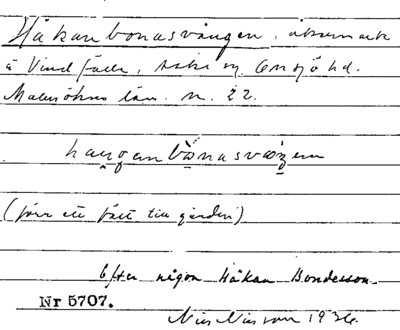 Håkanbonasvången, åkermark
å Vindfälle, Aske sn, Onsjö hd.
Malmöhus län. n. 22.
(förr ett fält till gården)
Efter någon Håkan Bondesson.
Nr 5707.
Nils Nilsson 1936.